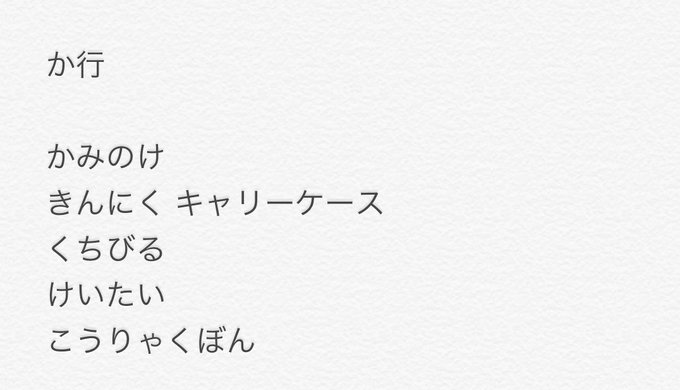 か行
かみのけ
きんにく キャリーケース
くちびる
けいたい
こうりゃくぼん